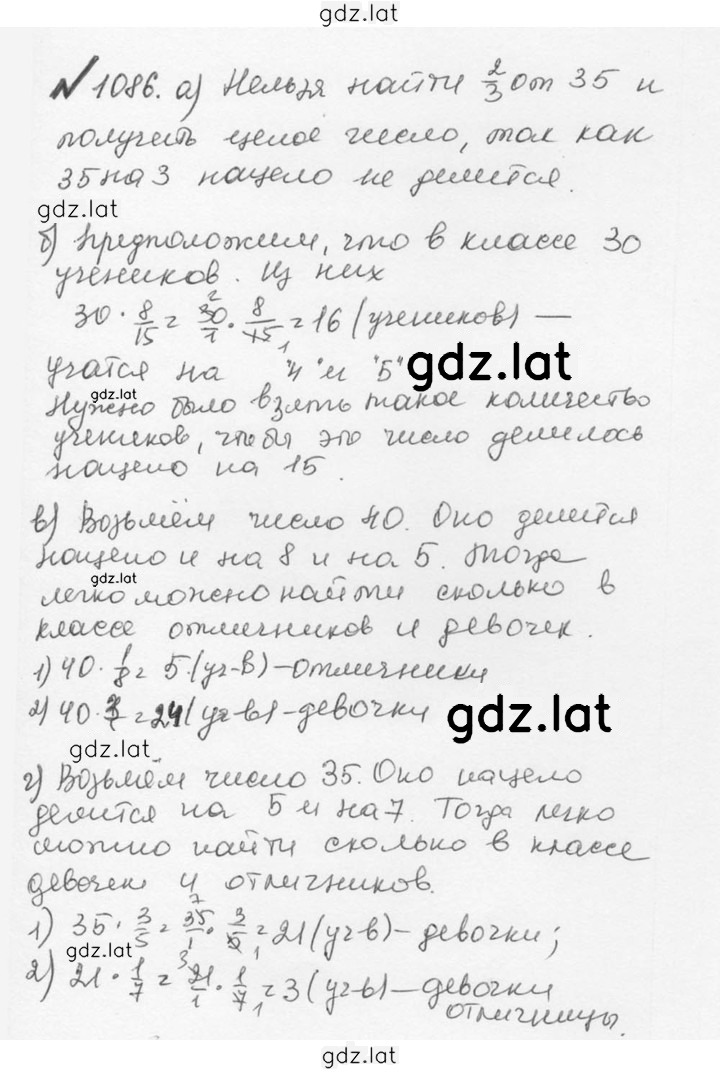 gdz.lat
№1086. а) Нельзя найти 2/3 от 35 и
получить целое число, так как
35 на 3 нацело не делится.
gdz.lat
б) Предположим, что в классе 30
учеников. Из них
30 · 8/15 = 30/1 · 8/15 = 16 (учеников) —
учатся на "4" и "5"
gdz.lat
gdz.lat
Нужно было взять такое количество
учеников, чтобы это число делилось
нацело на 15.
в) Возьмём число 40. Оно делится
нацело и на 8 и на 5. Тогда
gdz.lat
легко можно найти сколько в
классе отличников и девочек.
1) 40 · 1/8 = 5 (уч-в) – отличники
2) 40 · 3/5 = 24 (уч-в) – девочки
gdz.lat
gdz.lat
г) Возьмём число 35. Оно нацело
делится на 5 и на 7. Тогда легко
можно найти сколько в классе
девочек и отличников.
1) 35 · 3/5 = 35/1 · 3/5 = 21 (уч-в) – девочки;
gdz.lat
2) 21 · 1/7 = 21/1 · 1/7 = 3 (уч-в) – девочки
отличницы.
gdz.lat